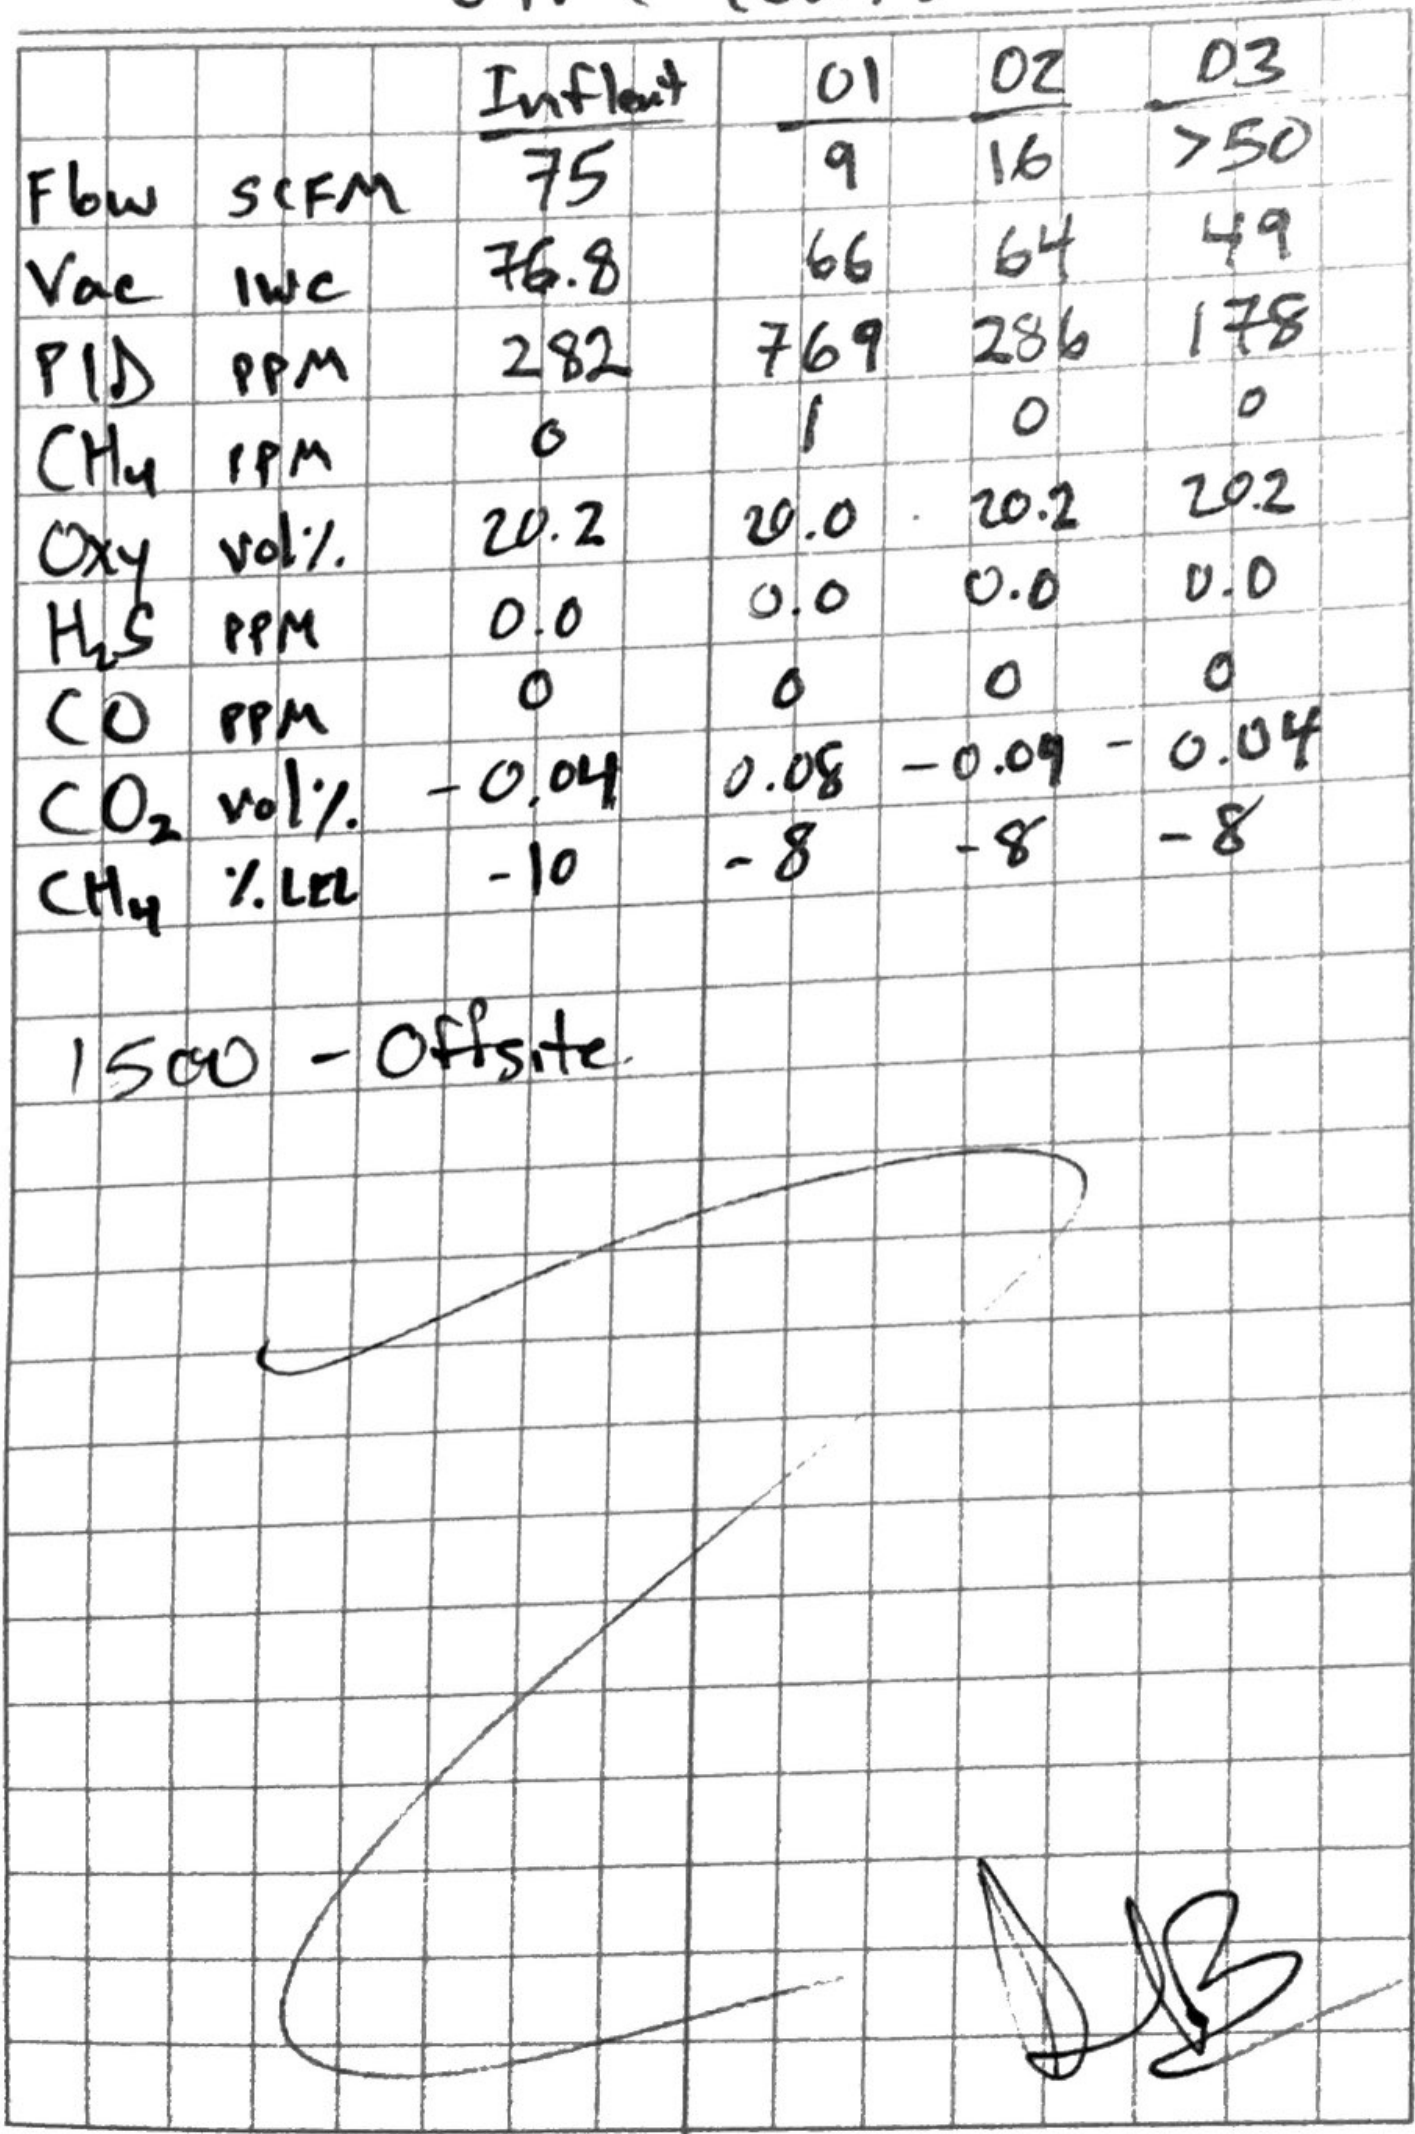 Influent 01 02 03
Flow SCFM 75 9 16 >50
Vac IWC 76.8 66 64 49
PID PPM 282 769 286 178
CH4 PPM 0 1 0 0
Oxy vol% 20.2 20.0 20.2 20.2
H2S PPM 0.0 0.0 0.0 0.0
CO PPM 0 0 0 0
CO2 vol% -0.04 0.08 -0.09 -0.04
CH4 %LEL -10 -8 -8 -8
1500 - Offsite